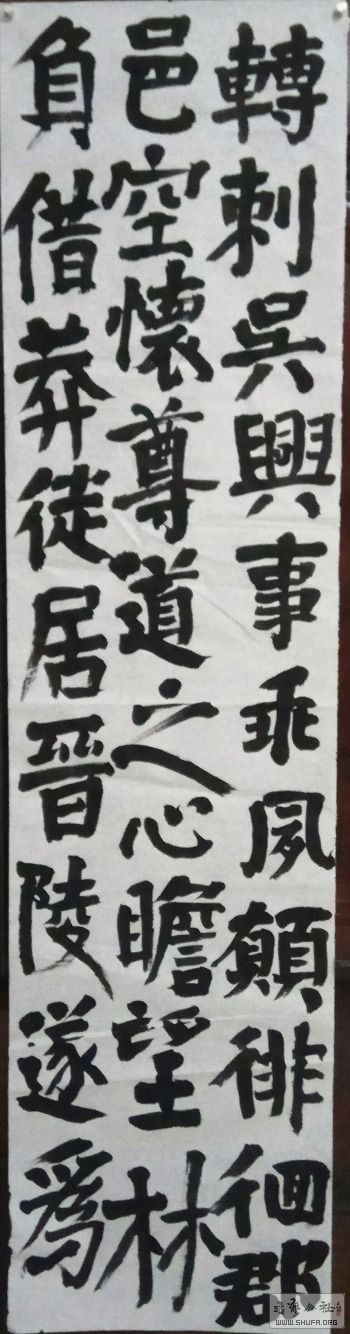 轉刺吳興事乖夙願徘徊郡
邑空懷尊道之心瞻望林
負借莽徒居晉陵遂為
WWW.SHUFA.ORG